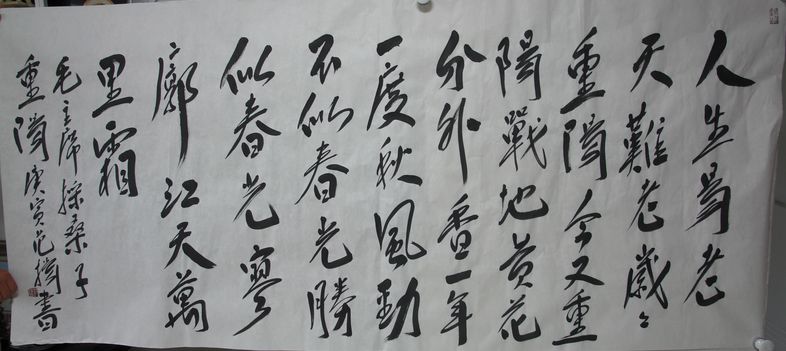 人生易老
天難老歲々
重陽今又重
陽戰地黄花
分外香一年
一度秋風勁
不似春光勝
似春光寥
廓江天萬
里霜
毛主席採桑子
重陽庚寅書